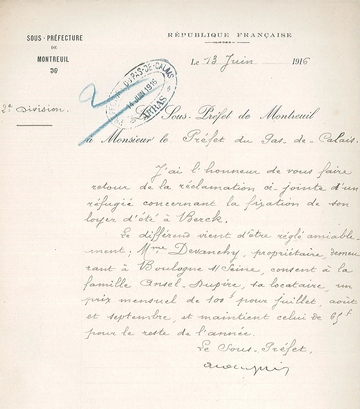 SOUS-PRÉFECTURE
DE
MONTREUIL
RÉPUBLIQUE FRANÇAISE
Le 13 Juin 1916
PAS-DE-CALAIS
14 JUIN 1916
ARRAS
2e Division.
Sous-Préfet de Montreuil
à Monsieur le Préfet du Pas-de-Calais.
J'ai l'honneur de vous faire
retour de la réclamation ci-jointe d'un
réfugié concernant la fixation de son
loyer d'été à Berck.
Le différend vient d'être réglé amiable
ment; Mme Devanchy, propriétaire, demeu
rant à Boulogne s/ Seine, consent à la
famille Ansel-Dupire, sa locataire, un
prix mensuel de 100f pour juillet, août
et septembre, et maintient celui de 65f
pour le reste de l'année.
Le Sous-Préfet,